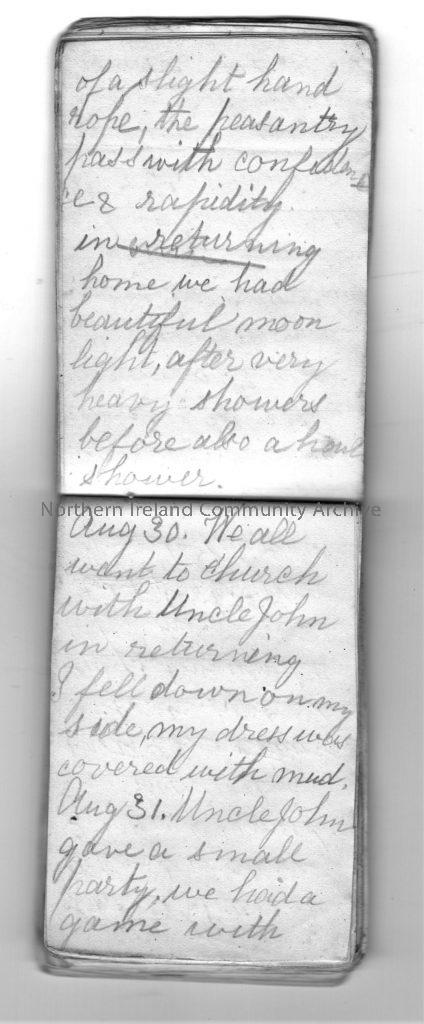 of a slight hand
rope, the peasantry
pass with confiden
ce & rapidity.
in returning
home we had
beautiful moon
light, after very
heavy showers
before also a
shower.
Northern Ireland Community Archive
Aug 30. We all
went to church
with Uncle John
in returning
I fell down on my
side, my dress was
covered with mud.
Aug 31. Uncle John
gave a small
party, we had a
game with